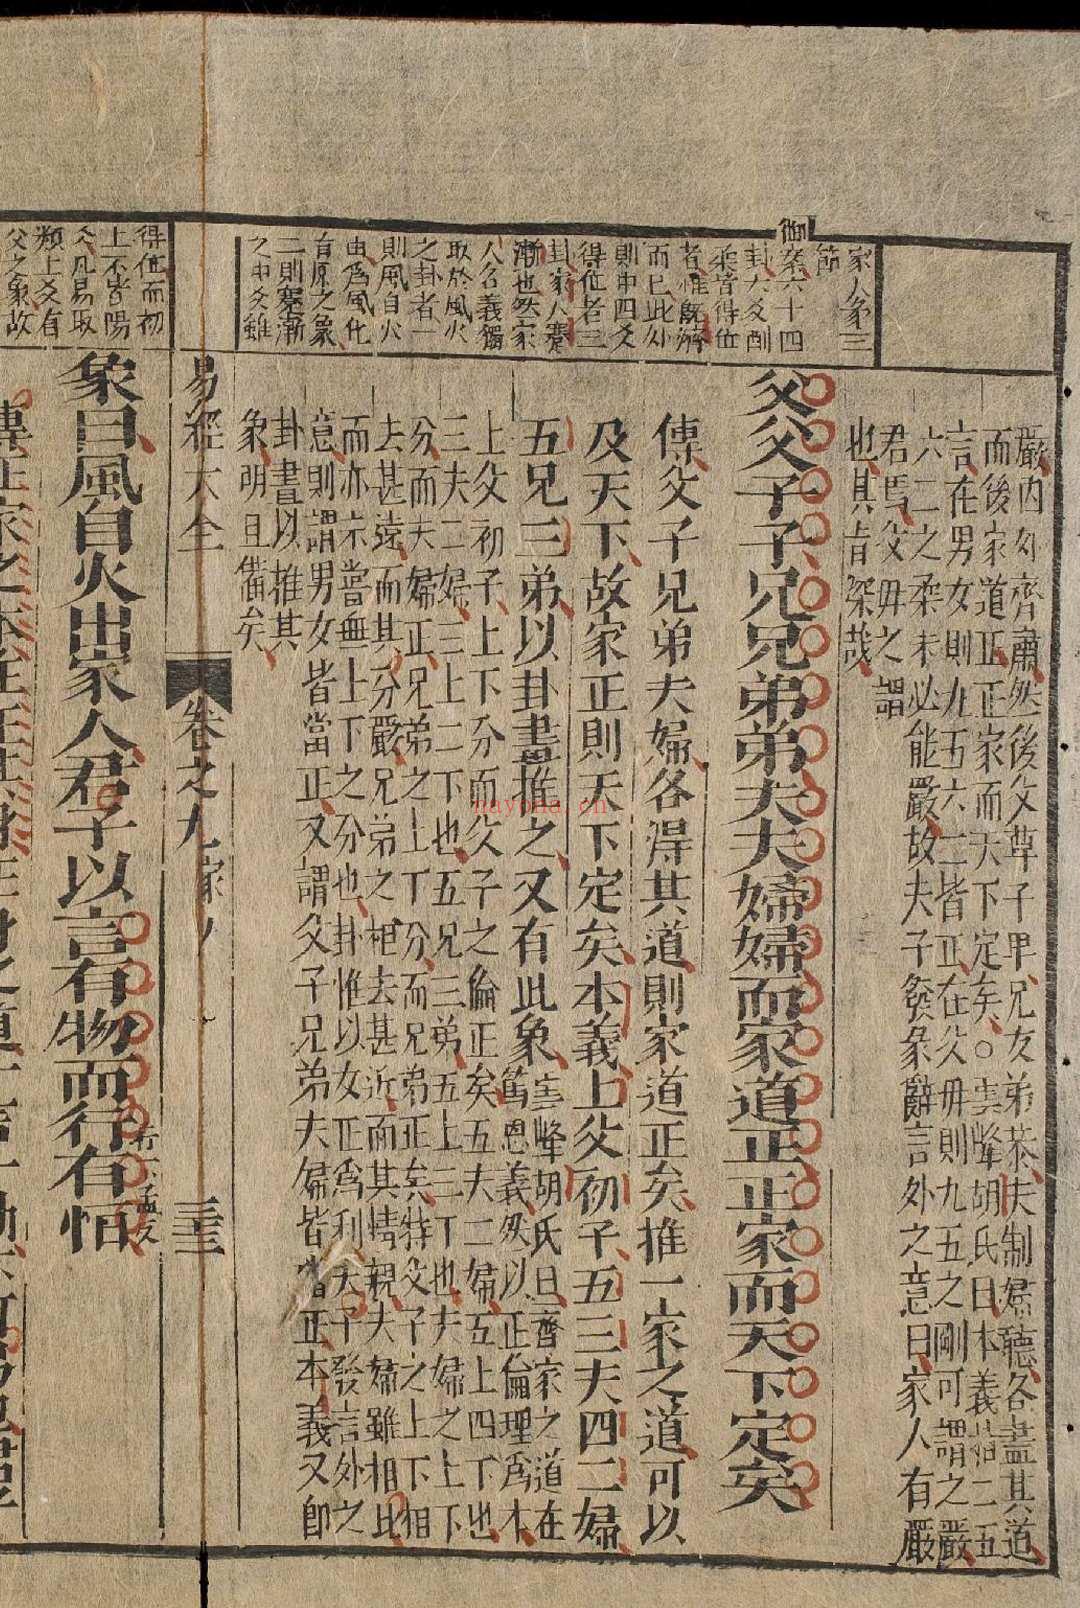 家人彖三
節
御案六十四
卦六爻剛
柔皆得位
者惟旣濟
而已此外
則中四爻
得位者三
卦家人蹇
漸也然家
人名義獨
取於風火
之卦者一
則風自火
由爲風化
自原之象
二則蹇漸
之中爻雖
嚴内外齊肅然後父尊子卑兄友弟恭夫制婦聽各盡其道
而後家道正正家而天下定矣○雲峰胡氏曰本義指二五
言在男女則九五六二皆正在父母則九五之剛可謂之嚴
六二之柔未必能嚴故夫子發彖辭言外之意曰家人有嚴
君焉父母之謂
也其旨深哉
父父子子兄兄弟弟夫夫婦婦而家道正正家而天下定矣
傳父子兄弟夫婦各得其道則家道正矣推一家之道可以
及天下故家正則天下定矣本義上父初子五三夫四二婦
五兄三弟以卦畫推之又有此象雲峰胡氏曰齊家之道在
篤恩義然以正倫理爲本
上父初子上下分而父子之倫正矣五夫二婦五上四下也
三夫二婦三上二下也五兄三弟五上三丁也夫婦之上下
分而夫婦正兄弟之上丁分而兄弟正矣特父子之上下相
去甚遠而其分嚴兄弟之相去甚近而其情親夫婦雖相比
而亦未嘗無上下之分也卦惟以女正爲利夫子發言外之
意則謂男女皆當正又謂父子兄弟夫婦皆當正本義又卽
卦畫以推其
象明且備矣
易經大全
卷之九家人
三三
得位而初
上不皆陽
爻凡易取
類上爻有
父之象故
象曰風自火出家人君子以言有物而行有恆
行下孟反